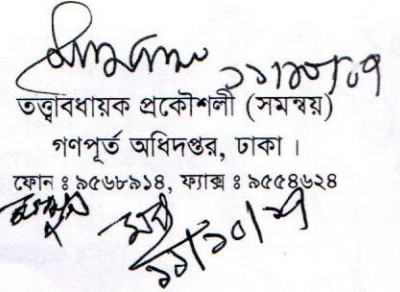 ১১/১০/০৭
তত্ত্বাবধায়ক প্রকৌশলী (সমন্বয়)
গণপূর্ত অধিদপ্তর, ঢাকা ।
ফোন ঃ ৯৫৬৮৯১৪, ফ্যাক্স ঃ ৯৫৫৪৬২৪